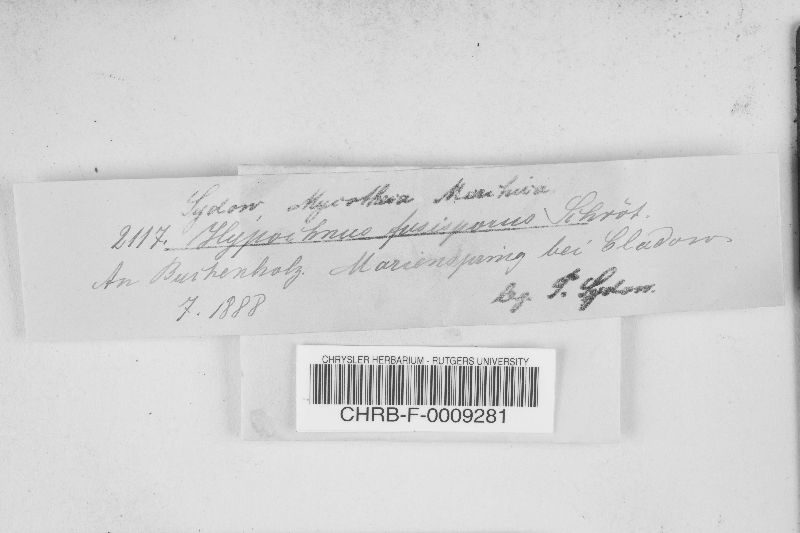 Sydow, Mycotheca Marchica.
2117. Hypochnus fusisporus Schröt.
An Buchenholz. Marienspring bei Cladow.
7. 1888
leg. P. Sydow.
CHRYSLER HERBARIUM - RUTGERS UNIVERSITY
CHRB-F-0009281